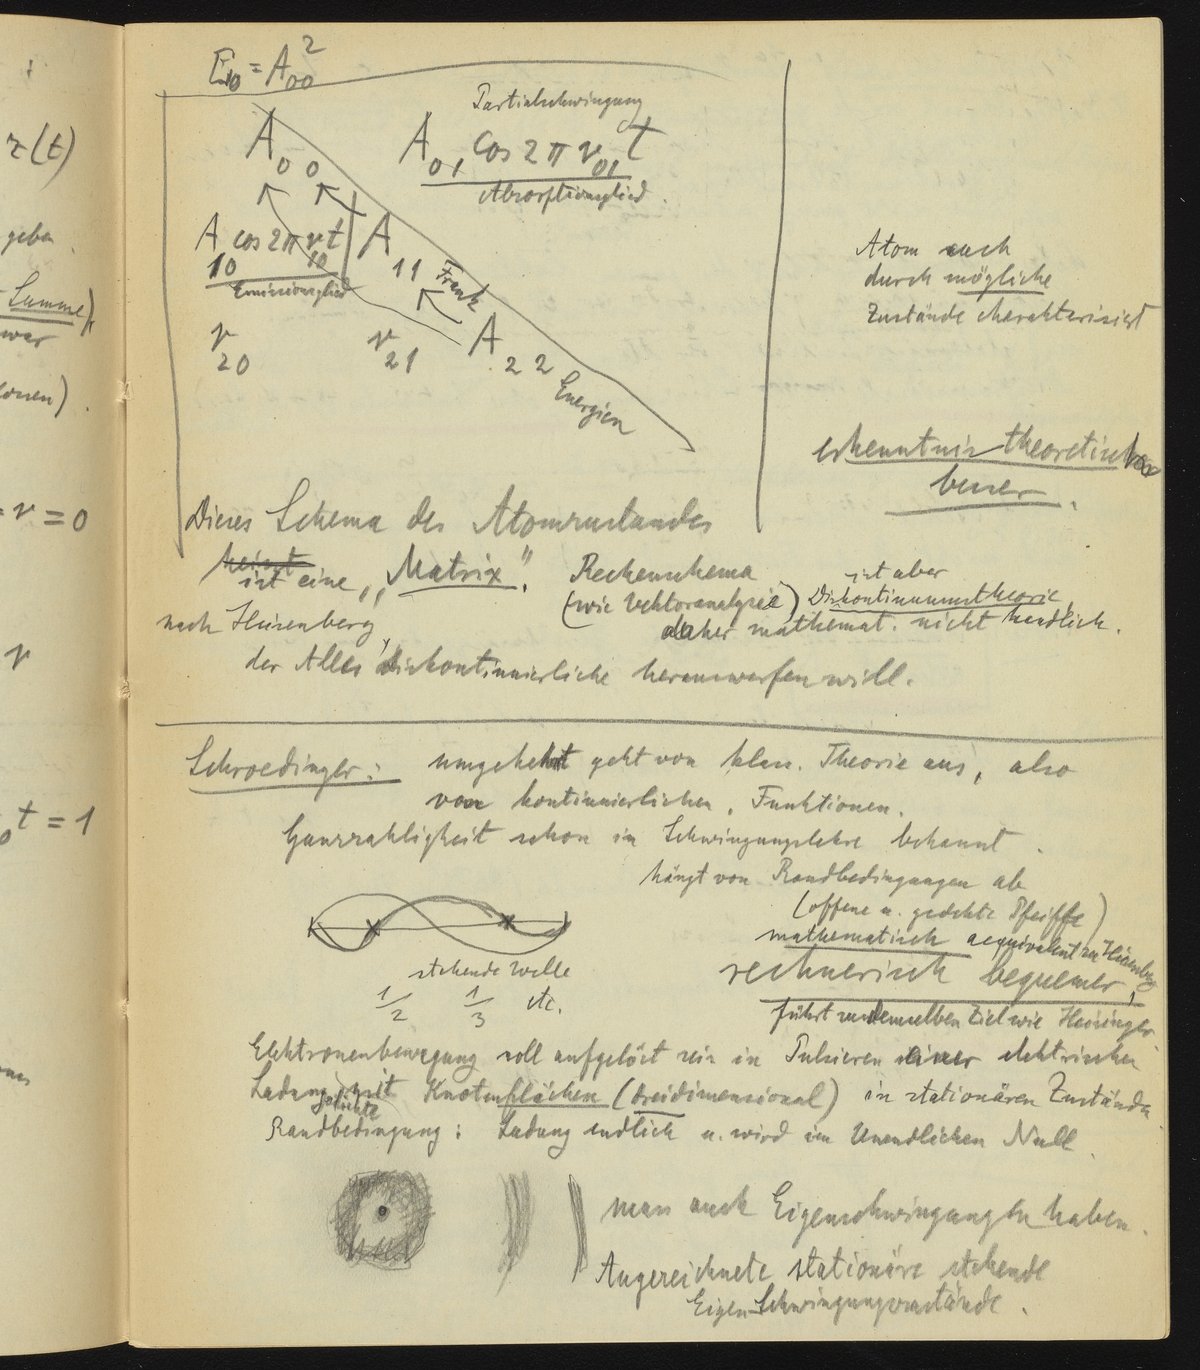 z(t)
geben
Summe),
zwar
= ν = 0
ν
t = 1
E₁₀ = A₀₀²
Partialschwingung
A₀₀ A₀₁ cos 2π ν₀₁ t
Absorptionsglied.
A₁₀ cos 2π ν₁₀ t A₁₁
Emissionsglied
ν₂₀ ν₂₁ A₂₂
Energien
Atom auch
durch mögliche
Zustände charakterisiert
erkenntnistheoretisch
besser.
Dieses Schema des Atomzustandes
heisst
ist eine „Matrix". Rechenschema
(wie Vektoranalysis)
ist aber
Diskontinuumstheorie,
daher mathemat. nicht handlich.
nach Heisenberg,
der Alles Diskontinuierliche herauswerfen will.
Schroedinger: umgekehrt geht von klass. Theorie aus, also
von kontinuierlichen Funktionen.
Ganzzahligkeit schon in Schwingungslehre bekannt.
hängt von Randbedingungen ab
(offene u. gedekte Pfeiffe)
mathematisch aequivalent zu Heisenberg
rechnerisch bequemer,
führt zu demselben Ziel wie
stehende Welle
1/2 1/3 etc.
Elektronenbewegung soll aufgelöst sein in Pulsieren einer elektrischen
Ladung mit Knotenflächen (dreidimensional) in stationären Zustände
Randbedingung: Ladung endlich u. wird im Unendlichen Null.
man auch Eigenschwingungen haben.
Ausgezeichnete stationäre stehende
Eigen-Schwingungszustände.